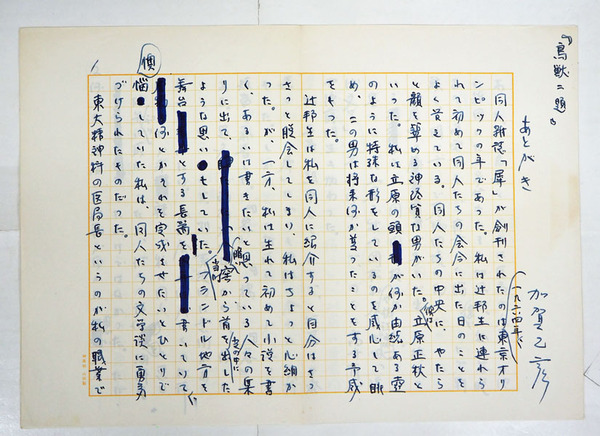 『鳥獣二題』
あとがき
加賀乙彦
同人雑誌「犀」が創刊されたのは東京オリ
(一九六四年)、
ンピックの年であった。私は辻邦生に連れら
れて初めて同人たちの会合に出た日のことを
よく覚えている。同人たちの中央に、やたら
と顔を顰める神経質な男がいた。立原正秋と
いった。私は立原の頭が何か由緒ある壺
のように特殊な形をしているのを感心して眺
め、この男は将来何か書ったことをする予感
をもった。
辻邦生は私を同人に紹介すると自分はさっ
さと脱会してしまい、私はちょっと心細か
った。が、一方、私は生れて初めて小説を書
く、あるいは書きたいと思っている人々の集
りに出て、
窖から首を出した
ような思いもしていた。フランドル地方を
当時
舞台とする長篇を書いていて、
何とかそれを完成させたいとひとりで
懊
悩していた私は、同人たちの文学談に勇気
づけられたものだった。
東大精神科の医局長というのが私の職業で